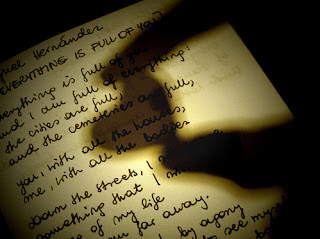 guel Hernández
EVERYTHING IS FULL OF YOU)
erything is full of you
and I am full of everything:
the cities are full,
and the cemeteries are full,
you, with all the houses,
me, with all the bodies
down the streets, I
something that I
of my life
far away.
by agony
to see myself